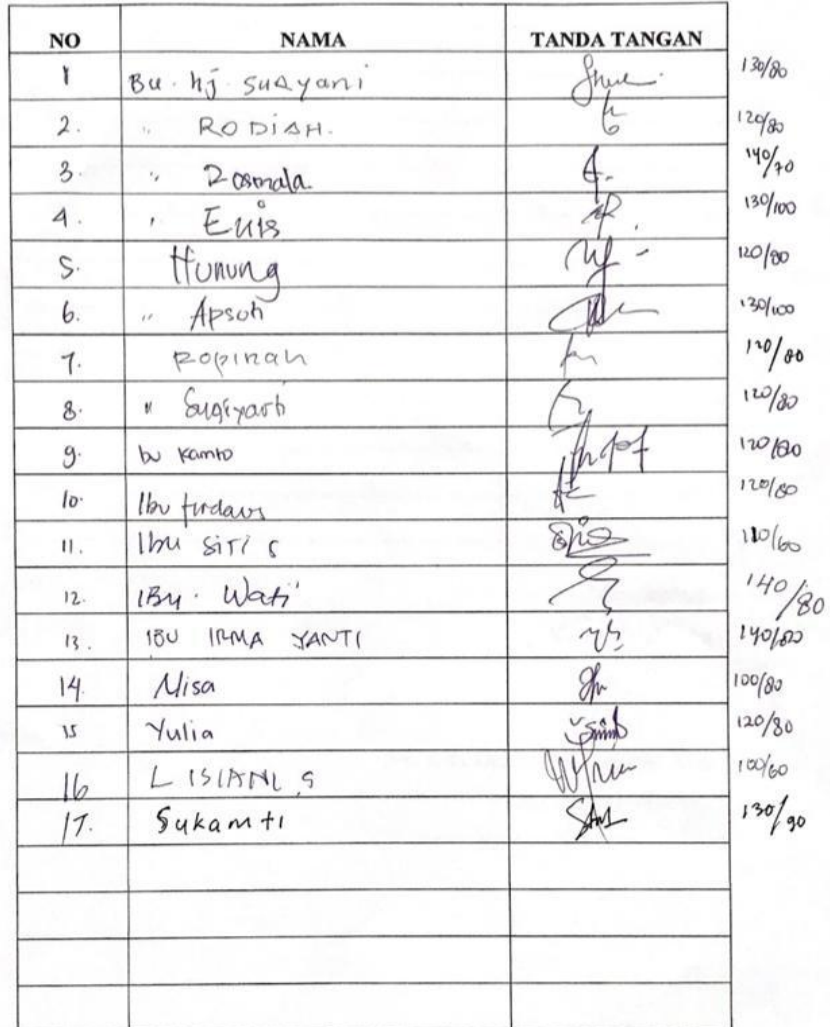 NO NAMA TANDA TANGAN
1 Bu. hj. suryani 130/80
2. " RODIAH. 120/80
3. " Rosmala 140/70
4. " Enis 130/100
5. Hunung 120/80
6. " Apsoh 130/100
7. ROPINAH 120/80
8. " Sugiyarti 120/80
9. bu Kamto 120/80
10. Ibu firdaus 120/80
11. Ibu SITI S 110/60
12. IBu. Wati 140/80
13. IBU IRMA YANTI 140/80
14. Nisa 100/80
15 Yulia 120/80
16 LISIANI, S 100/60
17. Sukamti 130/90